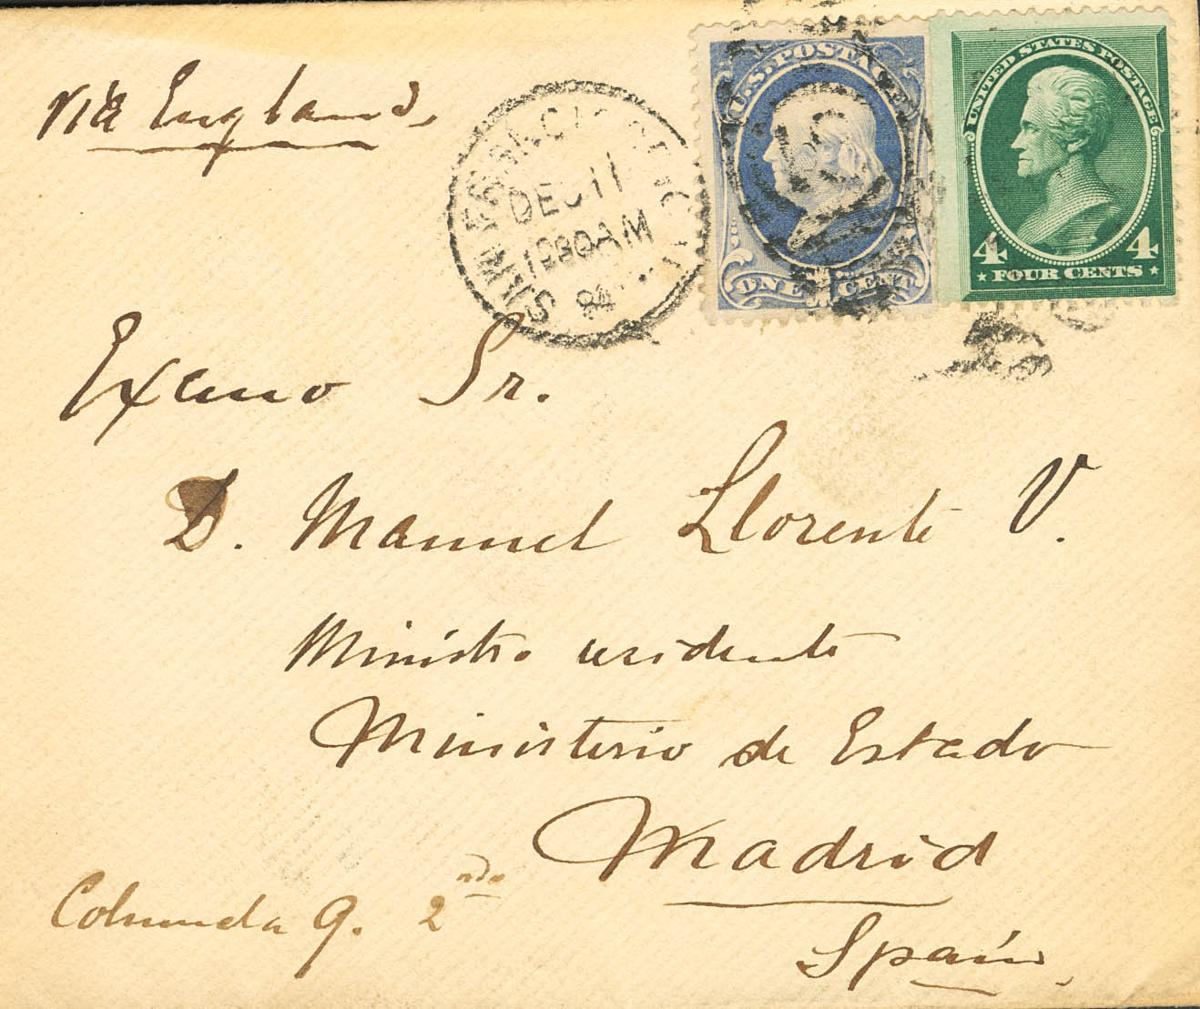 via England,
SAN FRANCISCO CAL
DEC 11
AM
84
U.S. POSTAGE
ONE CENT
UNITED STATES POSTAGE
4 4
FOUR CENTS
Excmo Sr.
D. Manuel Llorente V.
Ministro residente
Ministerio de Estado
Madrid
Spain,
Columela 9. 2ndo